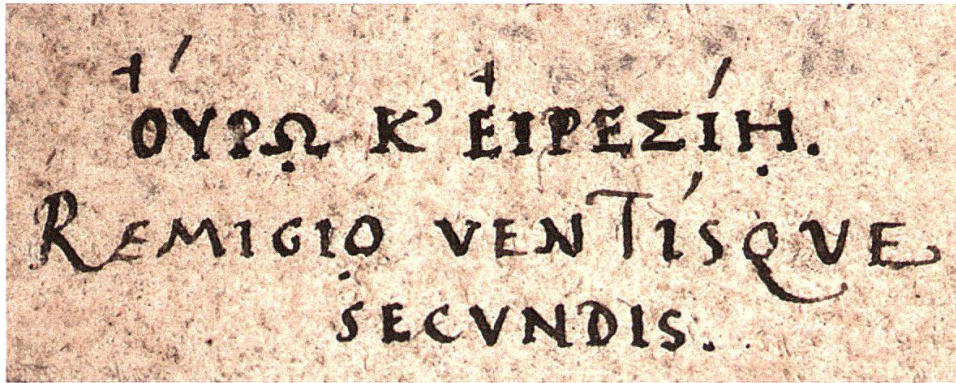 ὌΥΡῼ Κ’ ἘΙΡΕΣΊῌ.
REMIGIO VENTÍSQVE
SECVNDIS.